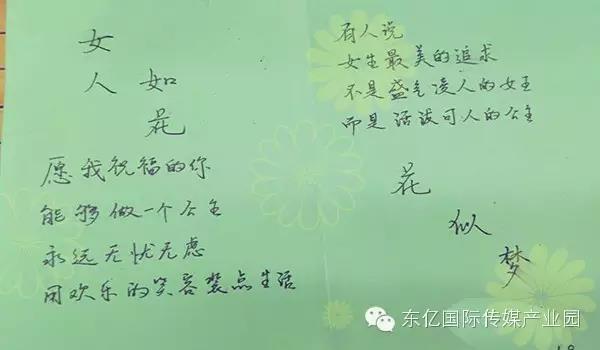 女
人 如
花
愿我祝福的你
能够做一个公主
永远无忧无虑
用欢乐的笑容装点生活
有人说
女生最美的追求
不是盛气凌人的女王
而是活泼可人的公主
花
似
梦
东亿国际传媒产业园